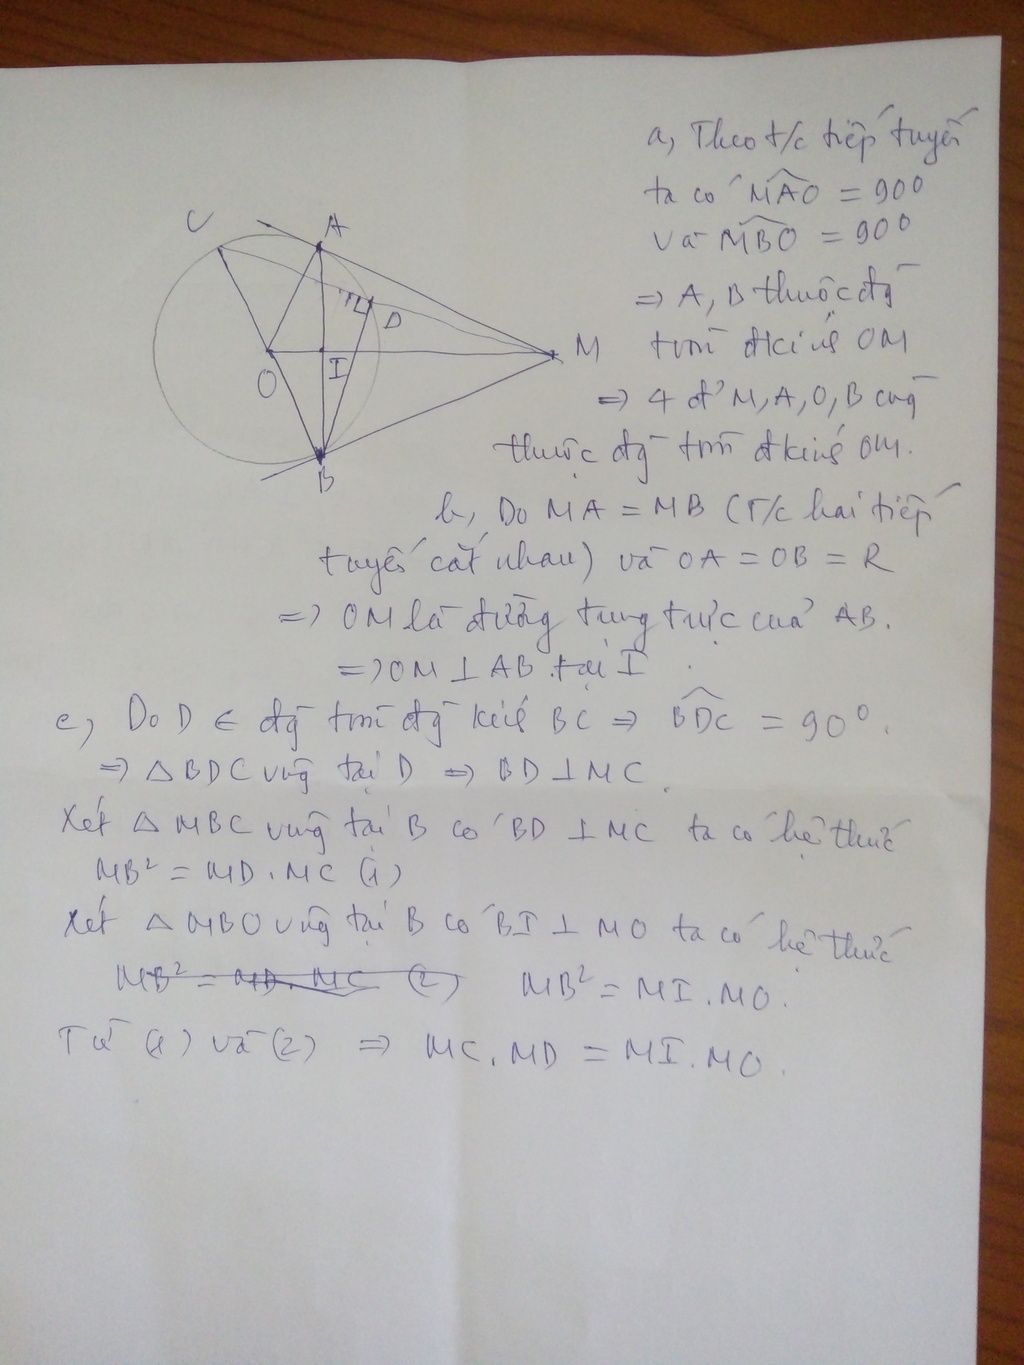 C
A
D
M
O
I
B
a, Theo t/c tiếp tuyến
ta có MAO = 90⁰
và MBO = 90⁰
=> A, B thuộc đg
tròn đkính OM
=> 4 đ' M, A, O, B cùng
thuộc đg tròn đkính OM.
b, Do MA = MB (T/c hai tiếp
tuyến cắt nhau) và OA = OB = R
=> OM là đường trung trực của AB.
=> OM ⊥ AB tại I
c, Do D ∈ đg tròn đg kính BC => BDC = 90⁰.
=> △ BDC vuông tại D => BD ⊥ MC.
Xét △ MBC vuông tại B có BD ⊥ MC ta có hệ thức
MB² = MD . MC (1)
Xét △ MBO vuông tại B có BI ⊥ MO ta có hệ thức
MB² = MD . MC (2) MB² = MI . MO.
Từ (1) và (2) => MC . MD = MI . MO.